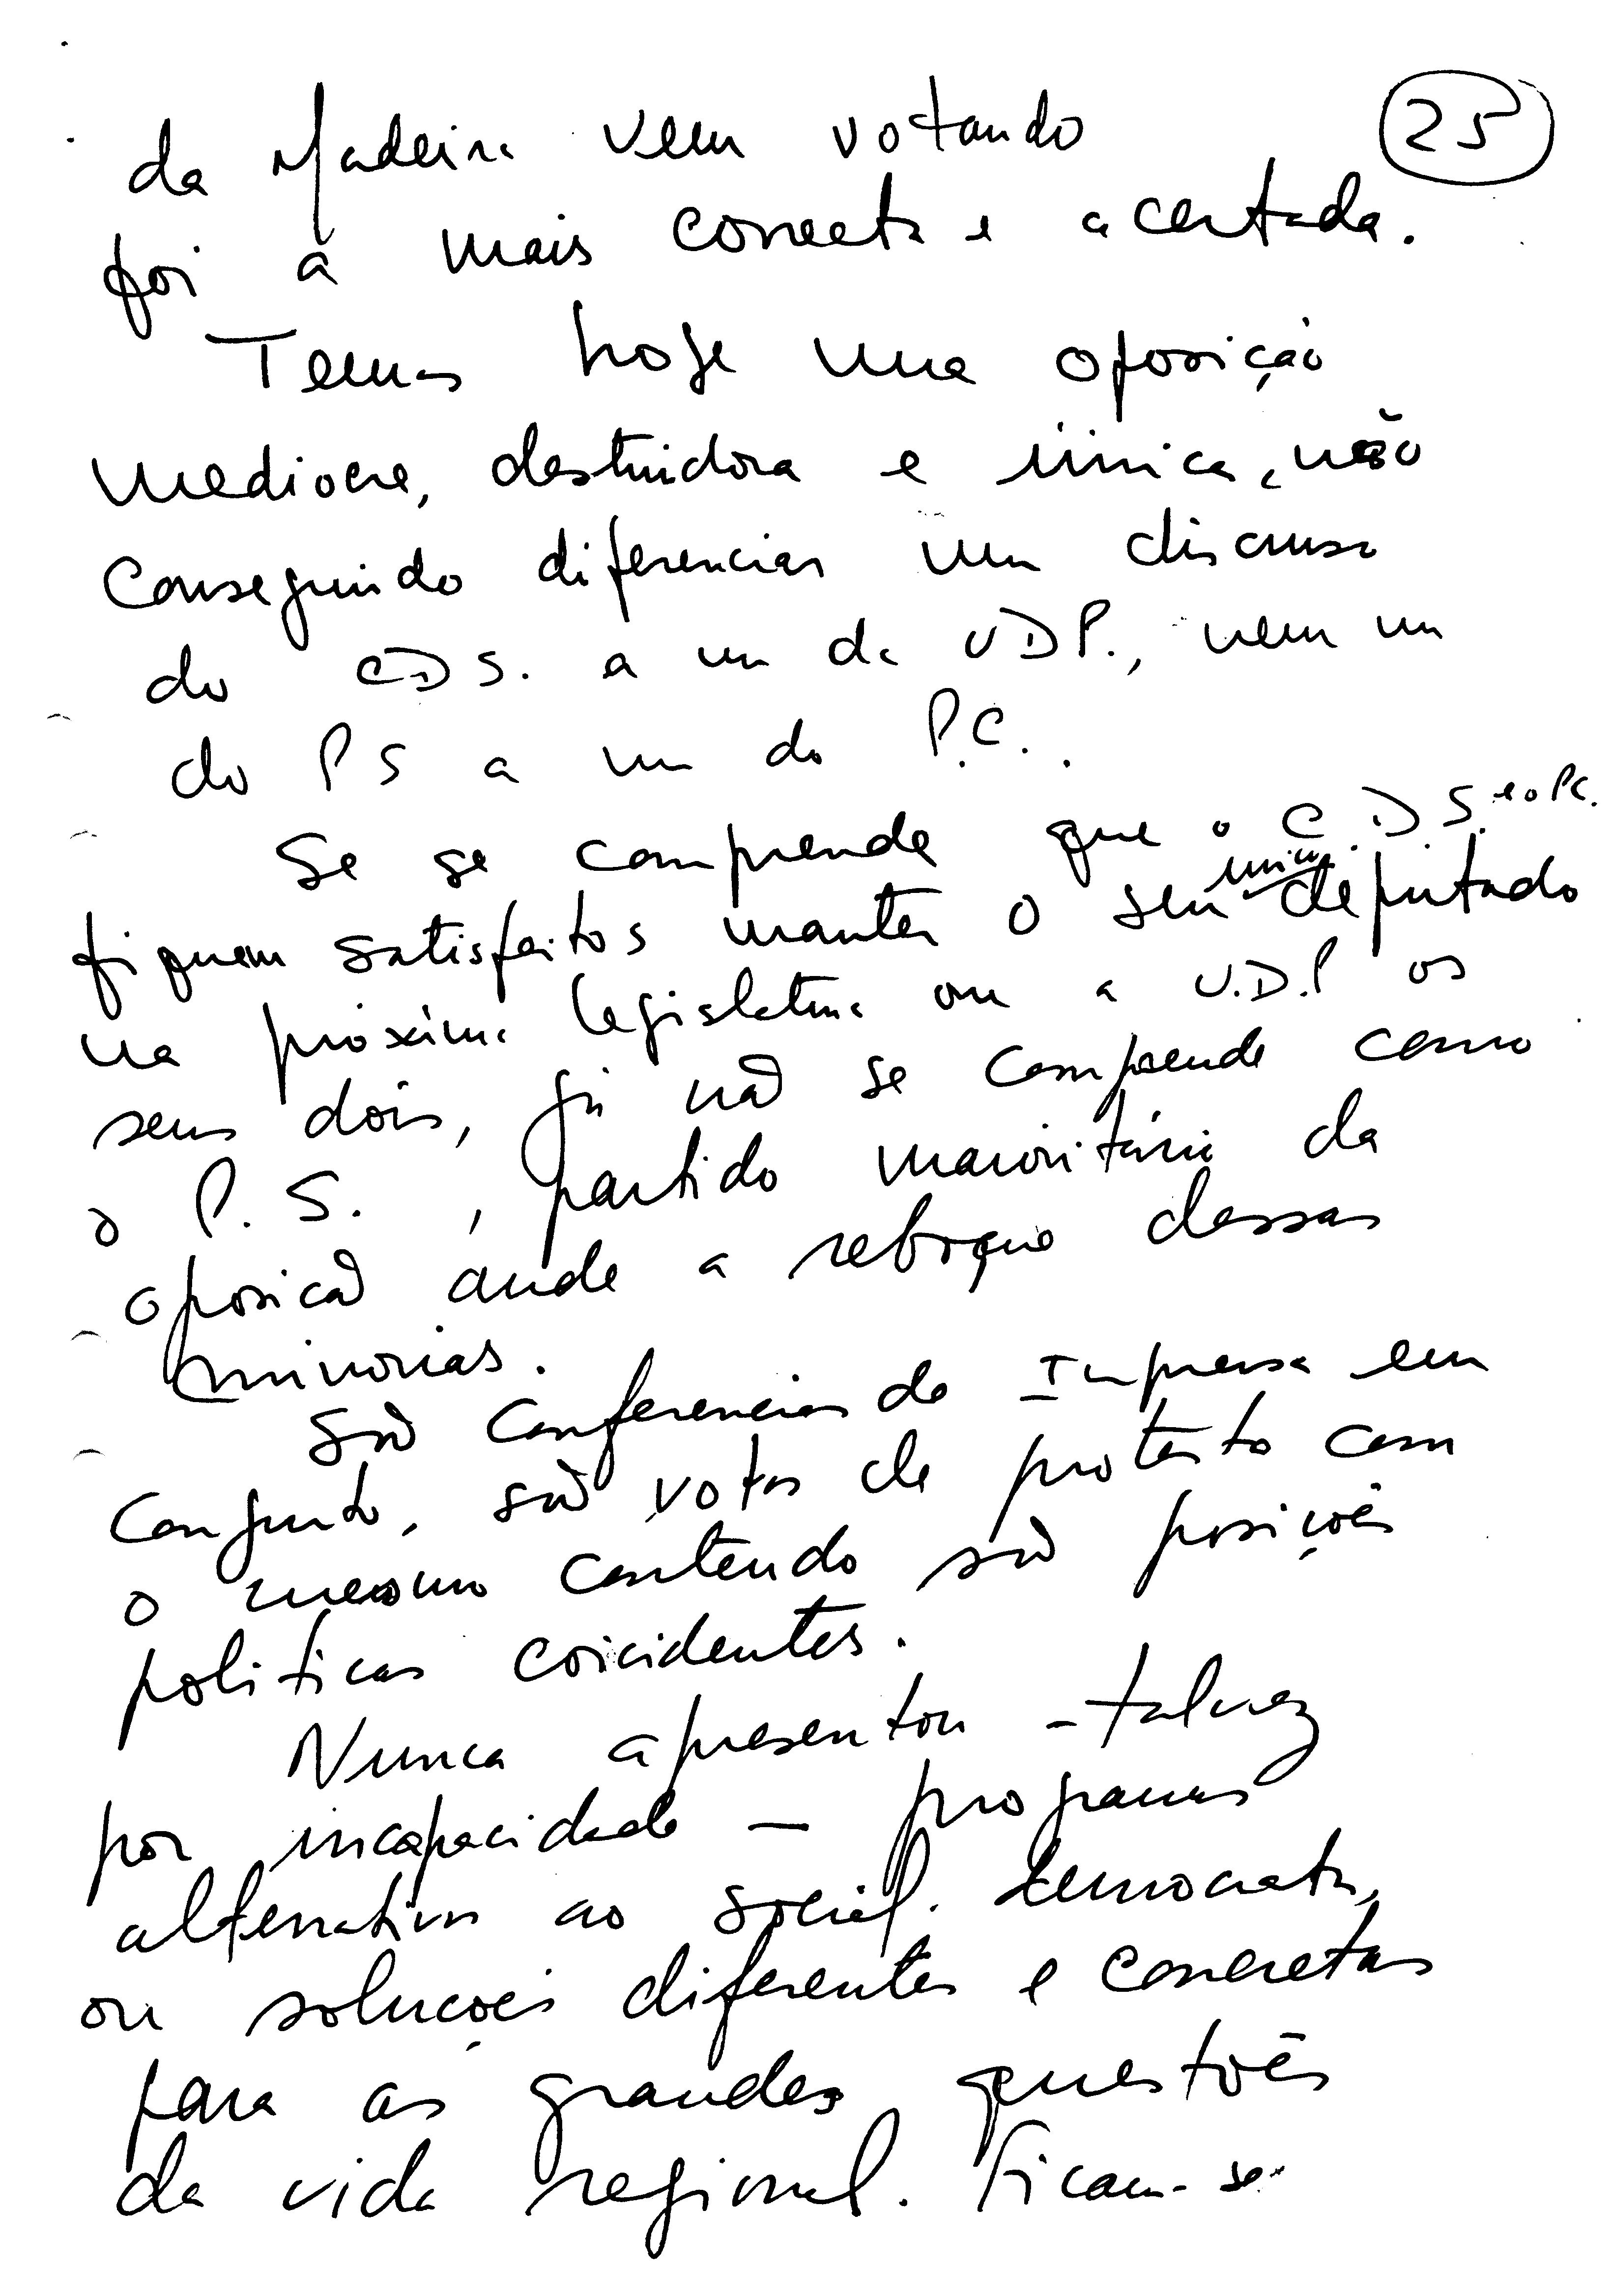 25
da Madeira vem votando
foi a mais correcta e acertada.
Temos hoje uma oposição
mediocre, destruidora e única, não
conseguindo diferenciar um discurso
do CDS. a um da UDP., nem um
do PS a um do P.C..
Se se comprende que o C.D.S. e o PC.
fiquem satisfeitos manter o seu único deputado
na próxima legislatura ou a U.D.P os
seus dois, já não se comprende como
o P.S., partido maioritário da
oposicão ande a reboque dessas
minorias.
São conferencias de Imprensa em
conjunto, são votos de protesto com
o mesmo conteudo são posições
politicas coicidentes.
Nunca apresentou - talvez
por incapacidade - programas
alternativos ao social-democrata,
ou soluções diferentes e concretas
para as grandes questões
da vida regional. Ficam-se